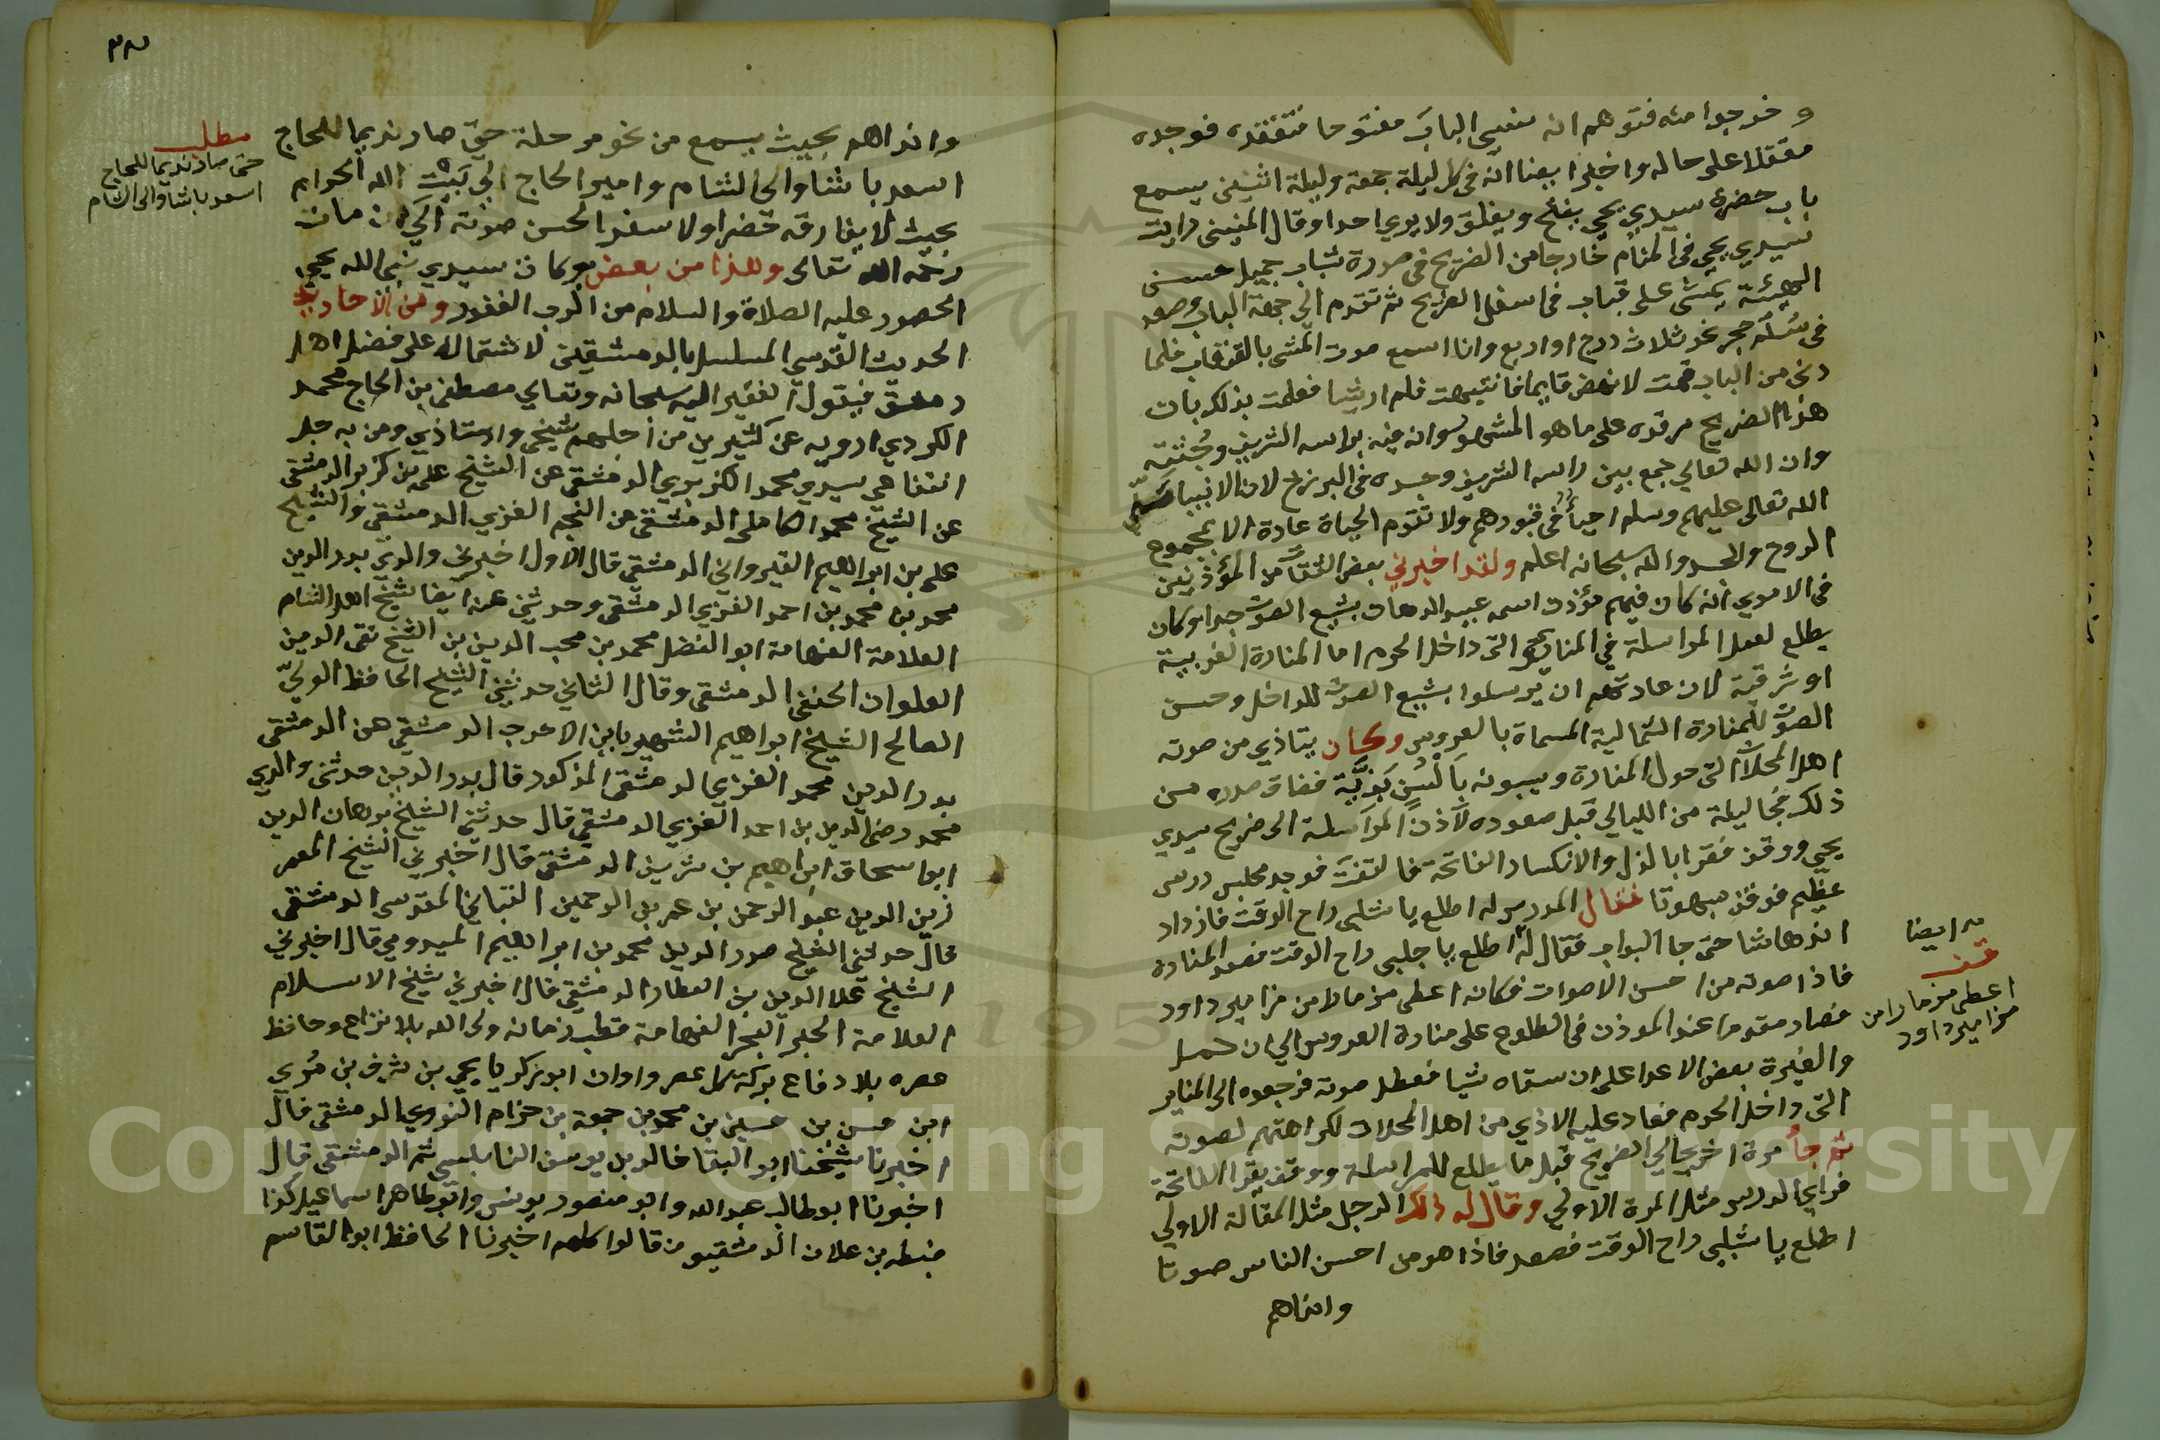 و خرجوا منه فتوهم انه نسي الباب مفتوحا فتفقده فوجده
مقفلا على حاله واخبر ايضا انه في كل ليلة جمعة وليلة اثنين يسمع
باب حضرة سيدي يحيى يفتح ويغلق ولا يرى احدا وقال المنيني رايت
سيدي يحيى في المنام خارجا من الضريح في صورة شاب جميل حسن
الهيئة يمشي على قبقاب في اسفل الضريح ثم تقدم الى جهة الباب وصعد
في سلم حجر نحو ثلاث درج او اربع وانا اسمع صوت المشي بالقبقاب فلما
دنى من الباب قمت لانهض قايما فانتبهت فلم ار شيا فعلمت بذلك بان
هذا الضريح مرقده على ما هو المشهور وانه فيه براسه الشريف وجثته
وان الله تعالى جمع بين راسه الشريف وجسده في البرزخ لان الانبيا صلى
الله تعالى عليهم وسلم احيا في قبورهم ولا تقوم الحياة عادة الا بمجموع
الروح والجسد والله سبحانه اعلم ولقد اخبرني بعض الثقات من المؤذنين
في الاموي انه كان فيهم مؤذن اسمه عبيد الدهان بشيع الصوت جدا وكان
يطلع لعمل المراسلة في المناير التي داخل الحرم اما المنارة الغربية
او شرقية لان عادتهم ان يرسلوا بشيع الصوت للداخل وحسن
الصوت للمنارة الشمالية المسماة بالعروس وكان يتاذي من صوته
اهل المحلات التي حول المنارة ويسبونه بالسن بذية فضاق صدره من
ذلك فجا ليلة من الليالي قبل صعوده لاذن المراسلة الى ضريح سيدي
يحيى ووقف فقرا بالذل والانكسار الفاتحة فالتفت فوجد مجلس درس
عظيم فوقف مبهوتا فقال المدرس له اطلع يا شلبي راح الوقت فازداد
اندهاشا حتى جا البواب فقال له اطلع يا جلبي راح الوقت فصعد المنارة
فاذا صوته من احسن الاصوات فكانه اعطي مزمارا من مزامير داود
فصار مقدوما عند الموذن في الطلوع على منارة العروس الى ان حمل
والغيرة بعض الاعدا على ان سقاه شيا فعطل صوته فرجعوه الى المناير
التي داخل الحرم فعاد عليه الاذي من اهل المحلات لكراهتهم لصوته
ثم جا مرة اخرى الى الضريح قبل ما يطلع للمراسلة ووقف يقرا الفاتحة
فراى الدرس مثل المرة الاولى وقال له ذلك الرجل مثل المقالة الاولى
اطلع يا شلبي راح الوقت فصعد فاذا هو من احسن الناس صوتا
وانداهم
ايضا
قف
اعطي مزمارا من
مزامير داود
وانداهم بحيث يسمع من نحو مرحلة حتى صار نديما للحاج
اسعد باشا والى الشام وامير الحاج الى بيت الله الحرام
بحيث لا يفارقه حضرا ولا سفرا لحسن صوته الى ان مات
رحمه الله تعالى وهذا من بعض بركات سيدي نبي الله يحيى
الحصور عليه الصلاة والسلام من الرب الغفور ومن الاحاديث
الحديث القدسي المسلسل بالدمشقيين لاشتماله على فضل اهل
دمشق فيقول الفقير اليه سبحانه وتعالى مصطفى بن الحاج محمد
الكردي ارويه عن كثيرين من اجلهم شيخي واستاذي ومن به جل
انتفاعي سيدي محمد الكزبري الدمشقي عن الشيخ علي بن كزبر الدمشقي
عن الشيخ محمد الكاملي الدمشقي عن النجم الغزي الدمشقي والشيخ
على بن ابراهيم القيرواني الدمشقي قال الاول اخبرني والدي بدر الدين
محمد بن محمد بن احمد الغزي الدمشقي وحدثني عنه ايضا شيخ اهل الشام
العلامة الفهامة ابو الفضل محمد بن محب الدين بن الشيخ تقي الدين
العلوان الحنفي الدمشقي وقال الثاني حدثني الشيخ الحافظ الولي
الصالح الشيخ ابراهيم الشهير بابن الاحدب الدمشقي عن الدمشقي
بدر الدين محمد الغزي الدمشقي المذكور قال بدر الدين حدثني والدي
محمد رضى الدين بن احمد الغزي الدمشقي قال حدثني الشيخ برهان الدين
ابو اسحاق ابراهيم بن شريف الدمشقي قال اخبرني الشيخ المعمر
زين الدين عبد الرحمن بن عمر بن الرحمين القباني المقدسي الدمشقي
قال حدثني الشيخ صدر الدين محمد بن ابراهيم الميدومي قال اخبرني
الشيخ علا الدين بن العطار الدمشقي قال اخبرني شيخ الاسلام
العلامة الحبر البحر الفهامة قطب زمانه ولى الله بلا نزاع وحافظ
عصره بلا دفاع بركة كل عصر واوان ابو زكريا يحيى بن شرف بن مري
ابن حسن بن حسين بن محمد بن جمعة بن حزام النووي الدمشقي قال
اخبرنا شيخنا ابو البقا خالد بن يوسف النابلسي ثم الدمشقي قال
اخبرنا ابو طالب عبد الله وابو منصور يونس وابو طاهر اسماعيل كذا
ضبطه بن علان الدمشقيون قالوا كلهم اخبرنا الحافظ ابو القاسم
مطلب
حتى صار نديما للحاج
اسعد باشا والى الشام
Copyright © King Saud University
195